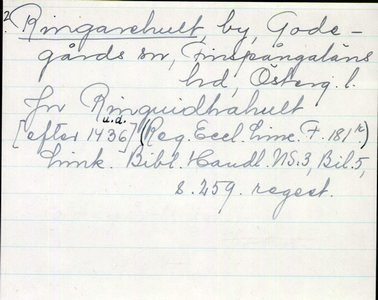 2. Ringarehult, by, Gode-
gårds sn, Finspångaläns
hd, Österg. l.
In Ringuidhahult
u.d.
[efter 1436] (Reg. Eccl. Linc. F. 181 r.)
Link. Bibl. Handl. NS:3, Bil. 5,
s. 259. regest.